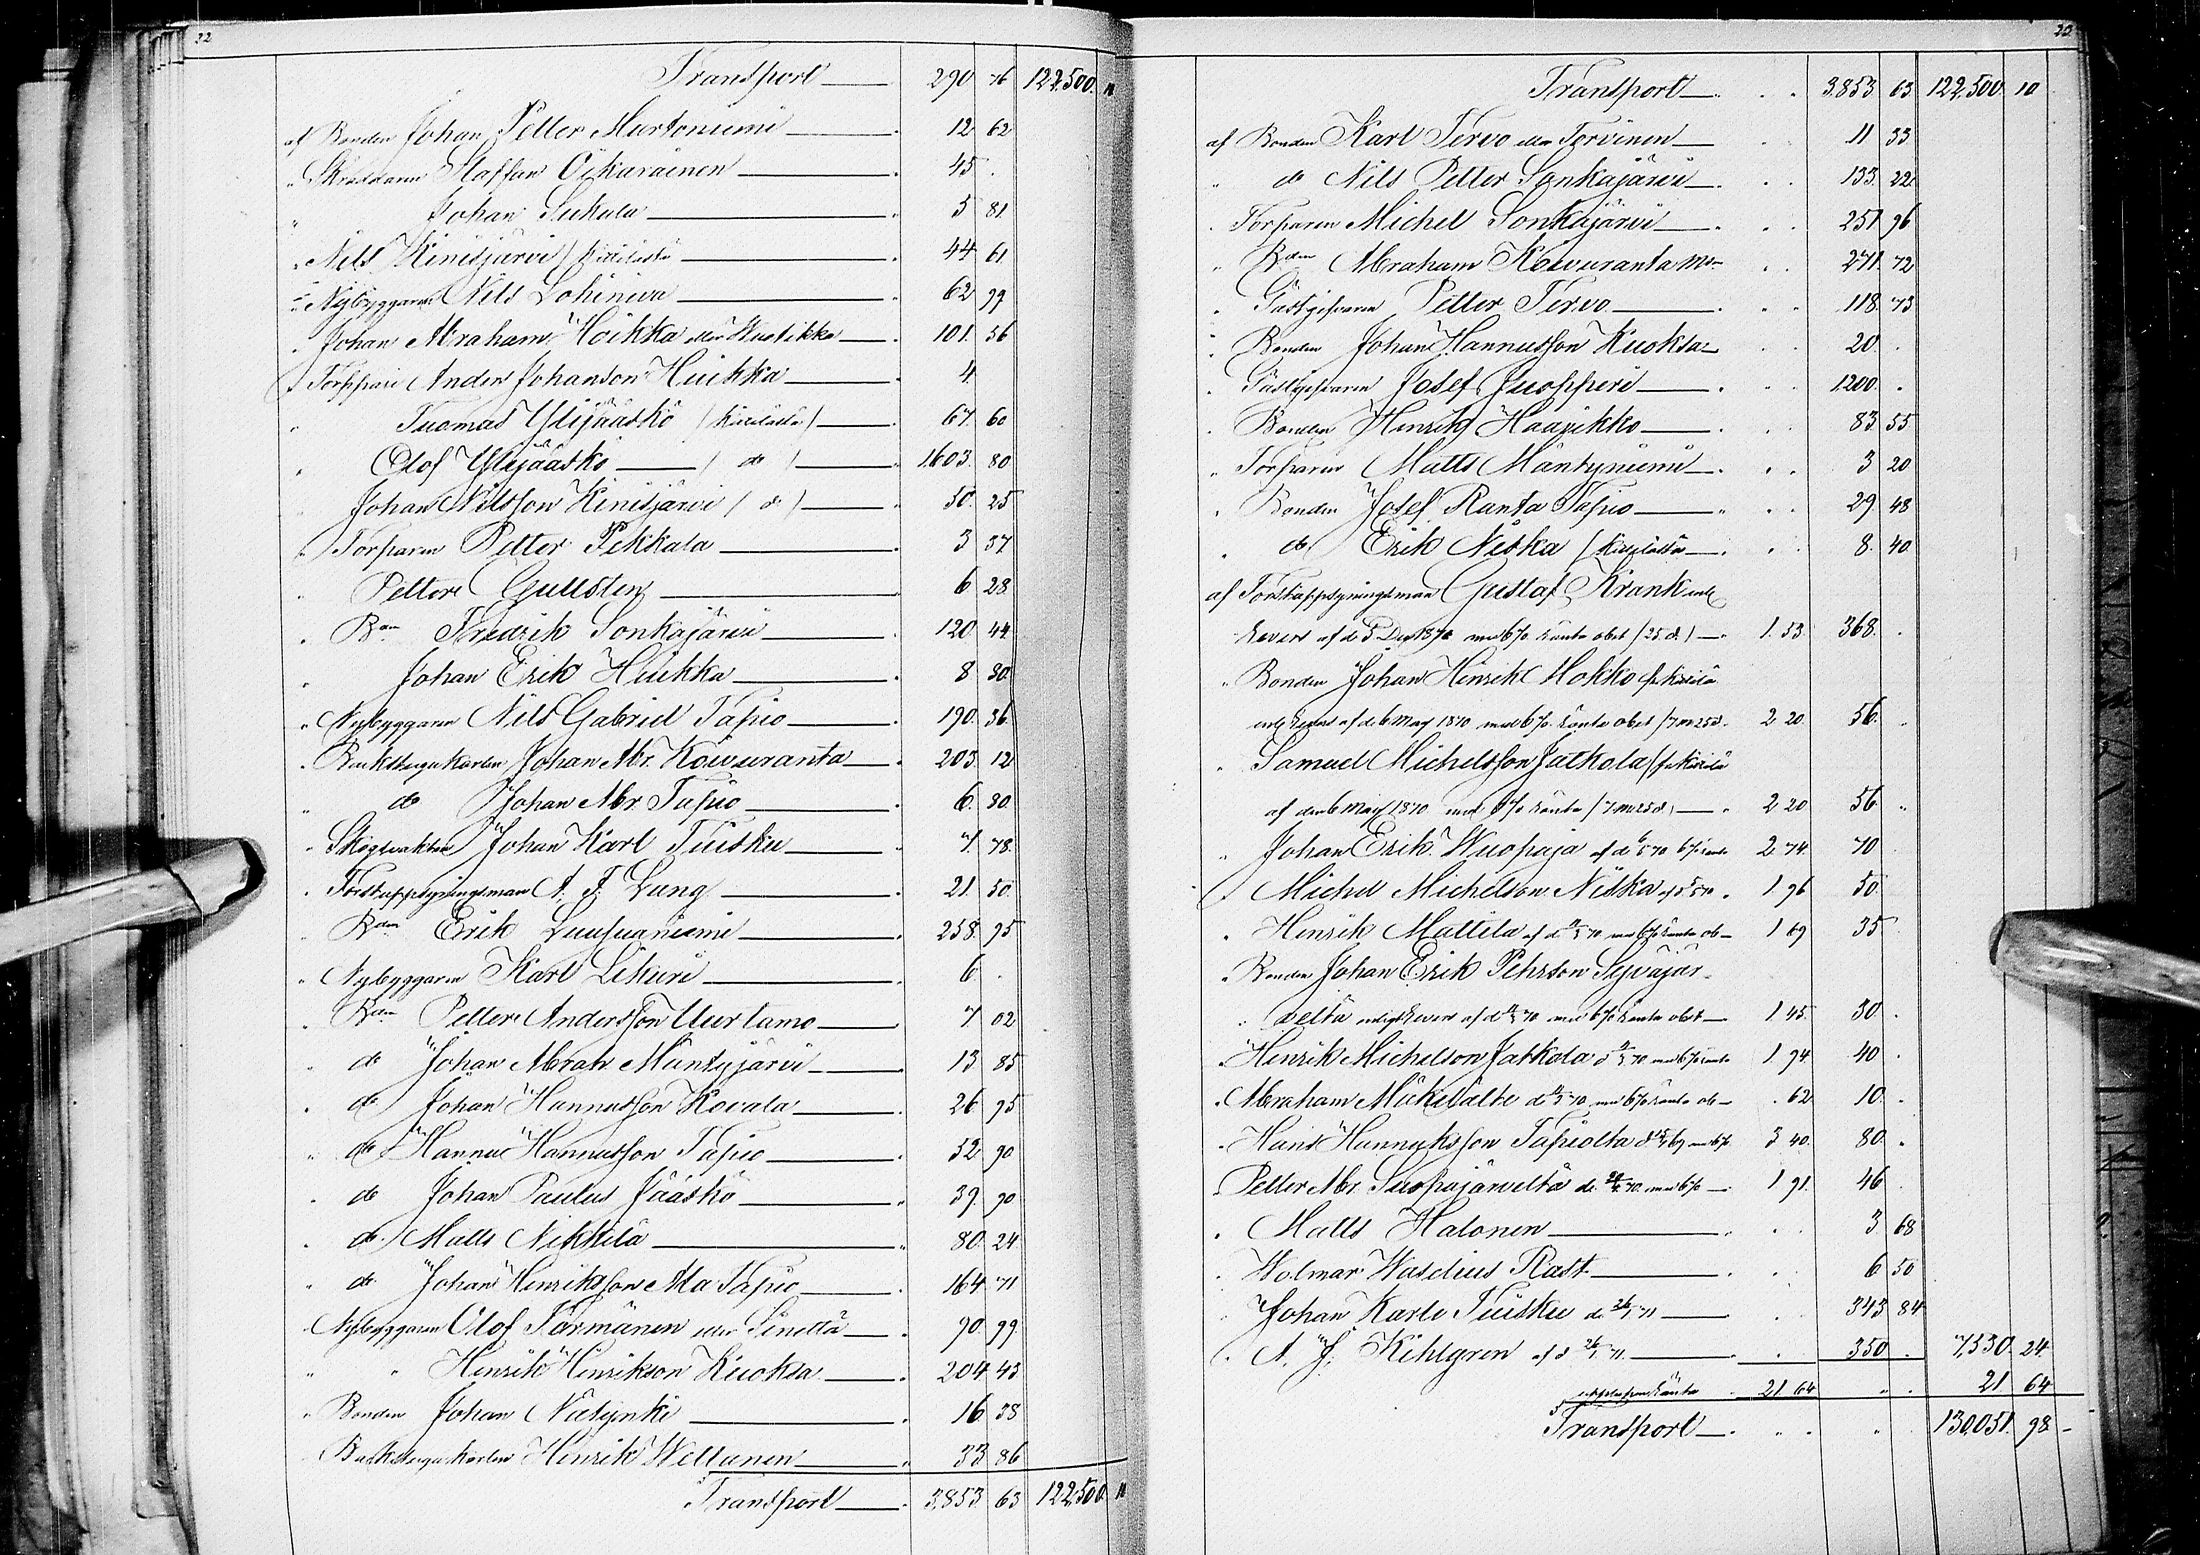 32
Transport 290 76 122,500
af Bonden Johan Petter Murtoniemi 12 62
" Skräddaren Staffan Oikarainen 45 .
" Johan Sukula 5 81
" Nils Kinisjärvi / Kittilästä 44 61
" Nybyggaren Nils Lohiniva 62 99
" Johan Abraham Hoikka eller 101. 56
" Torppari Anders Johanson Huikka 4
" Tuomas Ylijääskö (Kittilästä) 67. 60
" Olof Ylijääskö ( do ) 1.603. 80
" Johan Nilsson Kinisjärvi ( d ) 50. 25
" Torparen Petter Pekkala 3 37
" Petter Gullsten 6 28
" Bdn Fredrik Sonkajärvi 120 44
" Johan Erik Huikka 8 80
" Nybyggaren Nils Gabriel Tapio 190. 36.
" Backstugukarlen Johan Abr. Koivuranta 203. 12
" do Johan Abr. Tapio 6. 80
" Skogvaktare Johan Karl Tuisku 7. 78.
" Forstuppsyningsman A. F. Lang 21. 50.
" Bdn Erik Luusuaniemi 258. 95
" Nybyggaren Karl Likuri 6 .
" Bdn Petter Andersson Uurtamo 7 02
" do Johan Abrah Mäntyjärvi 13 85
" do Johan Hannusson Kovala 26 95
" do Hannu Hannusson Tapio 52 90
" do Johan Paulus Jääskö 39. 90
" do Matts Nikkilä 80. 24
" do Johan Henriksson Ala Tapio 164 71
" Nybyggaren Olof Törmänen eller Sinettä 90. 99.
" " Henrik Henrikson Kuoksa 204 43
" Bonden Johan Näsynki 16 38
" Backstugukarlen Henrik Weltunen 33 86
Transport 3,853 63 122,500
Transport 3.853. 63 122,500. 10
af Bonden Karl Tervo eller Tervinen 11 33
" do Nils Petter Sonkajärvi 133. 22
" Torparen Michel Sonkajärvi 251 96
" Bdn Abraham Koivuranta 271. 72
" Gästgifvaren Petter Tervo 118. 73
" Bonden Johan Hannusson Kuoksa 20. .
" Gästgifvaren Josef Juopperi 1200. .
" Bonden Henrik Haavikko 83. 55
" Torparen Matts Mäntyniemi 3 20
" Bonden Josef Ranta Tapio 29. 48
" do Erik Niska / Kittilästä 8. 40.
af Forstuppsyningsman Gustaf Krank enl
Revers af d 5 Dec 1870 med 6% ränta obet (25 d.) 1. 53. 368. .
" Bonden Johan Henrik Mokko fr Kittilä
enl Revers af de 6 Maj 1870 med 6% ränta obet /7 m 25 d. 2. 20. 56. .
" Samuel Michelsson Jatkola / fr Kittilä
af den 6 Maj 1870 med 6% ränta (7 m 25 d) 2 20 56. .
" Johan Erik Wuopaja af d 6/5 70 6% ränta 2 74. 70
" Michel Michelson Niska 1 96 50
" Henrik Mattila af d 70 med 6% ränta ob 1 69 35
" Bonden Johan Erik Pehrson Syväjär-
veltä enligt Revers af d 70 med 6% ränta obet 1 45. 30 .
" Henrik Michelson Jatkola d 70 med 6% ränta 1 94 40 .
" Abraham Mäkelälte d 70 med 6% ränta ob . 62 10. .
" Hans Hannuksson Tapiolta d 69 med 6% 3 40. 80. .
" Petter Abr. Suopajärveltä de 70. med 6% 1 91. 46 .
" Matts Halonen 3 68
" Wolmar Waselius Rast 6 50
" Johan Karle Tuisku de 26/1 71 343 84
" A. J. Kihlgren af d 26/1 71 350 . 7,530 24.
upplupen Ränta 21 64 " . 21 64
Transport 130,051. 98